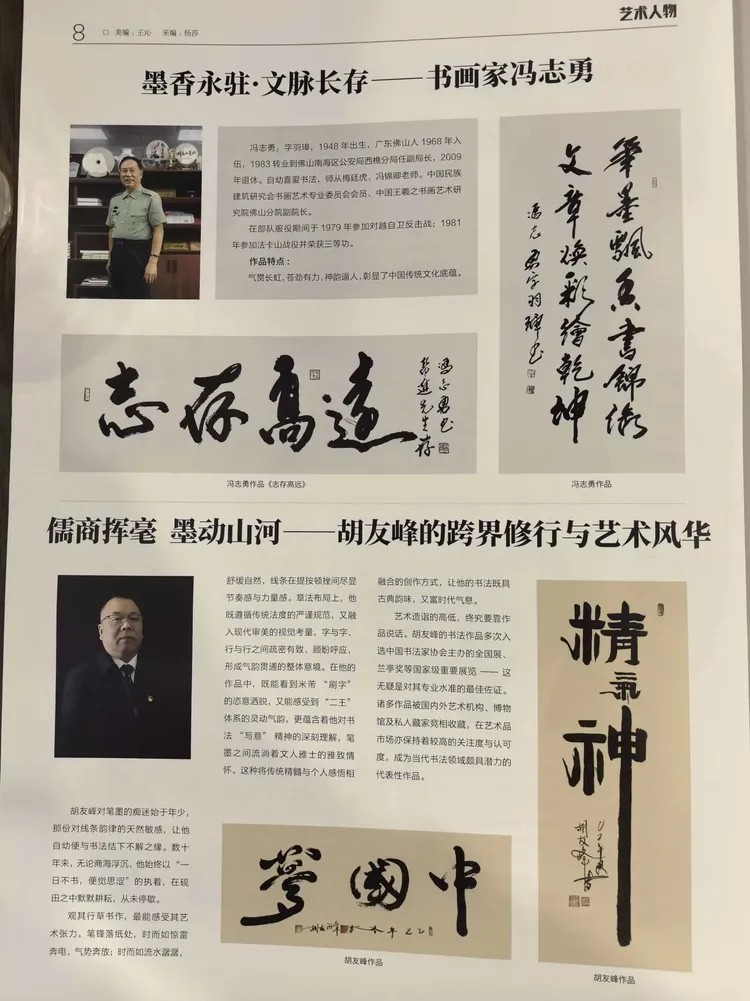 艺术人物
8 □ 美编：王沁 采编：杨莎
墨香永驻·文脉长存——书画家冯志勇
冯志勇；字羽璋，1948年出生，广东佛山人1968年入
伍，1983转业到佛山南海区公安局西樵分局任副局长，2009
年退休。自幼喜爱书法，师从梅廷虎、冯锦卿老师。中国民族
建筑研究会书画艺术专业委员会会员、中国王羲之书画艺术研
究院佛山分院副院长。
在部队服役期间于1979年参加对越自卫反击战；1981
年参加法卡山战役并荣获三等功。
作品特点：
气贯长虹，苍劲有力，神韵逼人，彰显了中国传统文化底蕴。
笔墨飘香书锦绣
文章焕彩绘乾坤
志存高远
冯志勇作品《志存高远》
冯志勇作品
儒商挥毫 墨动山河——胡友峰的跨界修行与艺术风华
胡友峰对笔墨的痴迷始于年少，
那份对线条韵律的天然敏感，让他
自幼便与书法结下不解之缘。数十
年来，无论商海浮沉，他始终以“一
日不书，便觉思涩”的执着，在砚
田之中默默耕耘，从未停歇。
观其行草书作，最能感受其艺
术张力。笔锋落纸处，时而如惊雷
奔电，气势奔放；时而如流水潺潺，
舒缓自然，线条在提按顿挫间尽显
节奏感与力量感。章法布局上，他
既遵循传统法度的严谨规范，又融
入现代审美的视觉考量，字与字、
行与行之间疏密有致、顾盼呼应，
形成气韵贯通的整体意境。在他的
作品中，既能看到米芾“刷字”
的恣意洒脱，又能感受到“二王”
体系的灵动气韵，更蕴含着他对书
法“写意”精神的深刻理解，笔
墨之间流淌着文人雅士的雅致情
怀。这种将传统精髓与个人感悟相
融合的创作方式，让他的书法既具
古典韵味，又富时代气息。
艺术造诣的高低，终究要靠作
品说话。胡友峰的书法作品多次入
选中国书法家协会主办的全国展、
兰亭奖等国家级重要展览——这
无疑是对其专业水准的最佳佐证。
诸多作品被国内外艺术机构、博物
馆及私人藏家竞相收藏，在艺术品
市场亦保持着较高的关注度与认可
度，成为当代书法领域颇具潜力的
代表性作品。
中國夢
胡友峰作品
精氣神
胡友峰作品